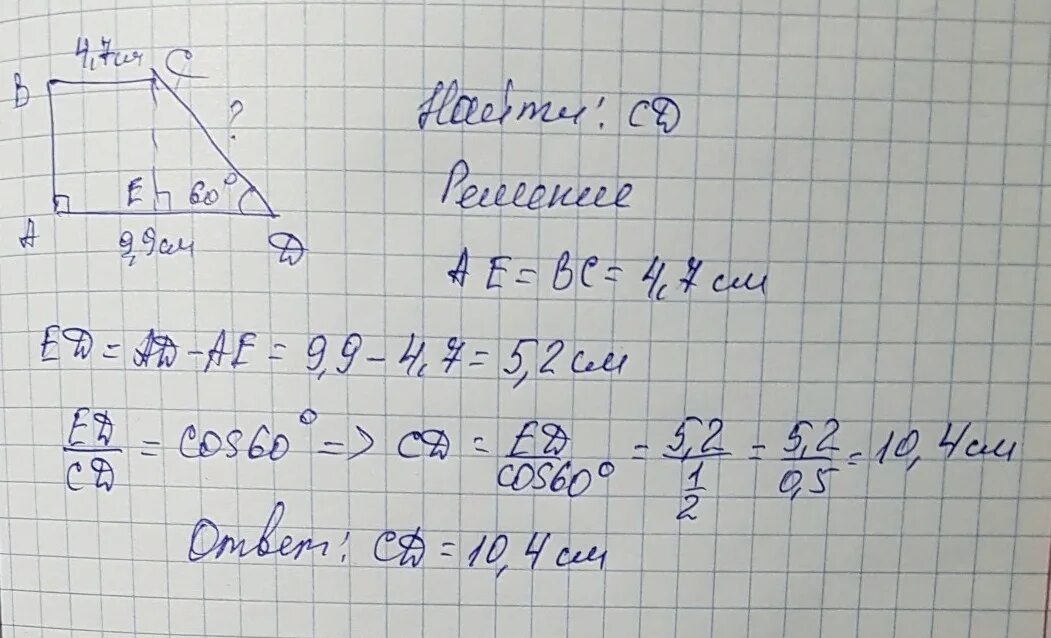 4,7см
B C
?
E 60°
A 9,9см D
Найти: CD
Решение
AE = BC = 4,7 см
ED = AD - AE = 9,9 - 4,7 = 5,2 см
ED/CD = cos60° => CD = ED/cos60° = 5,2/(1/2) = 5,2/0,5 = 10,4 см
Ответ: CD = 10,4 см